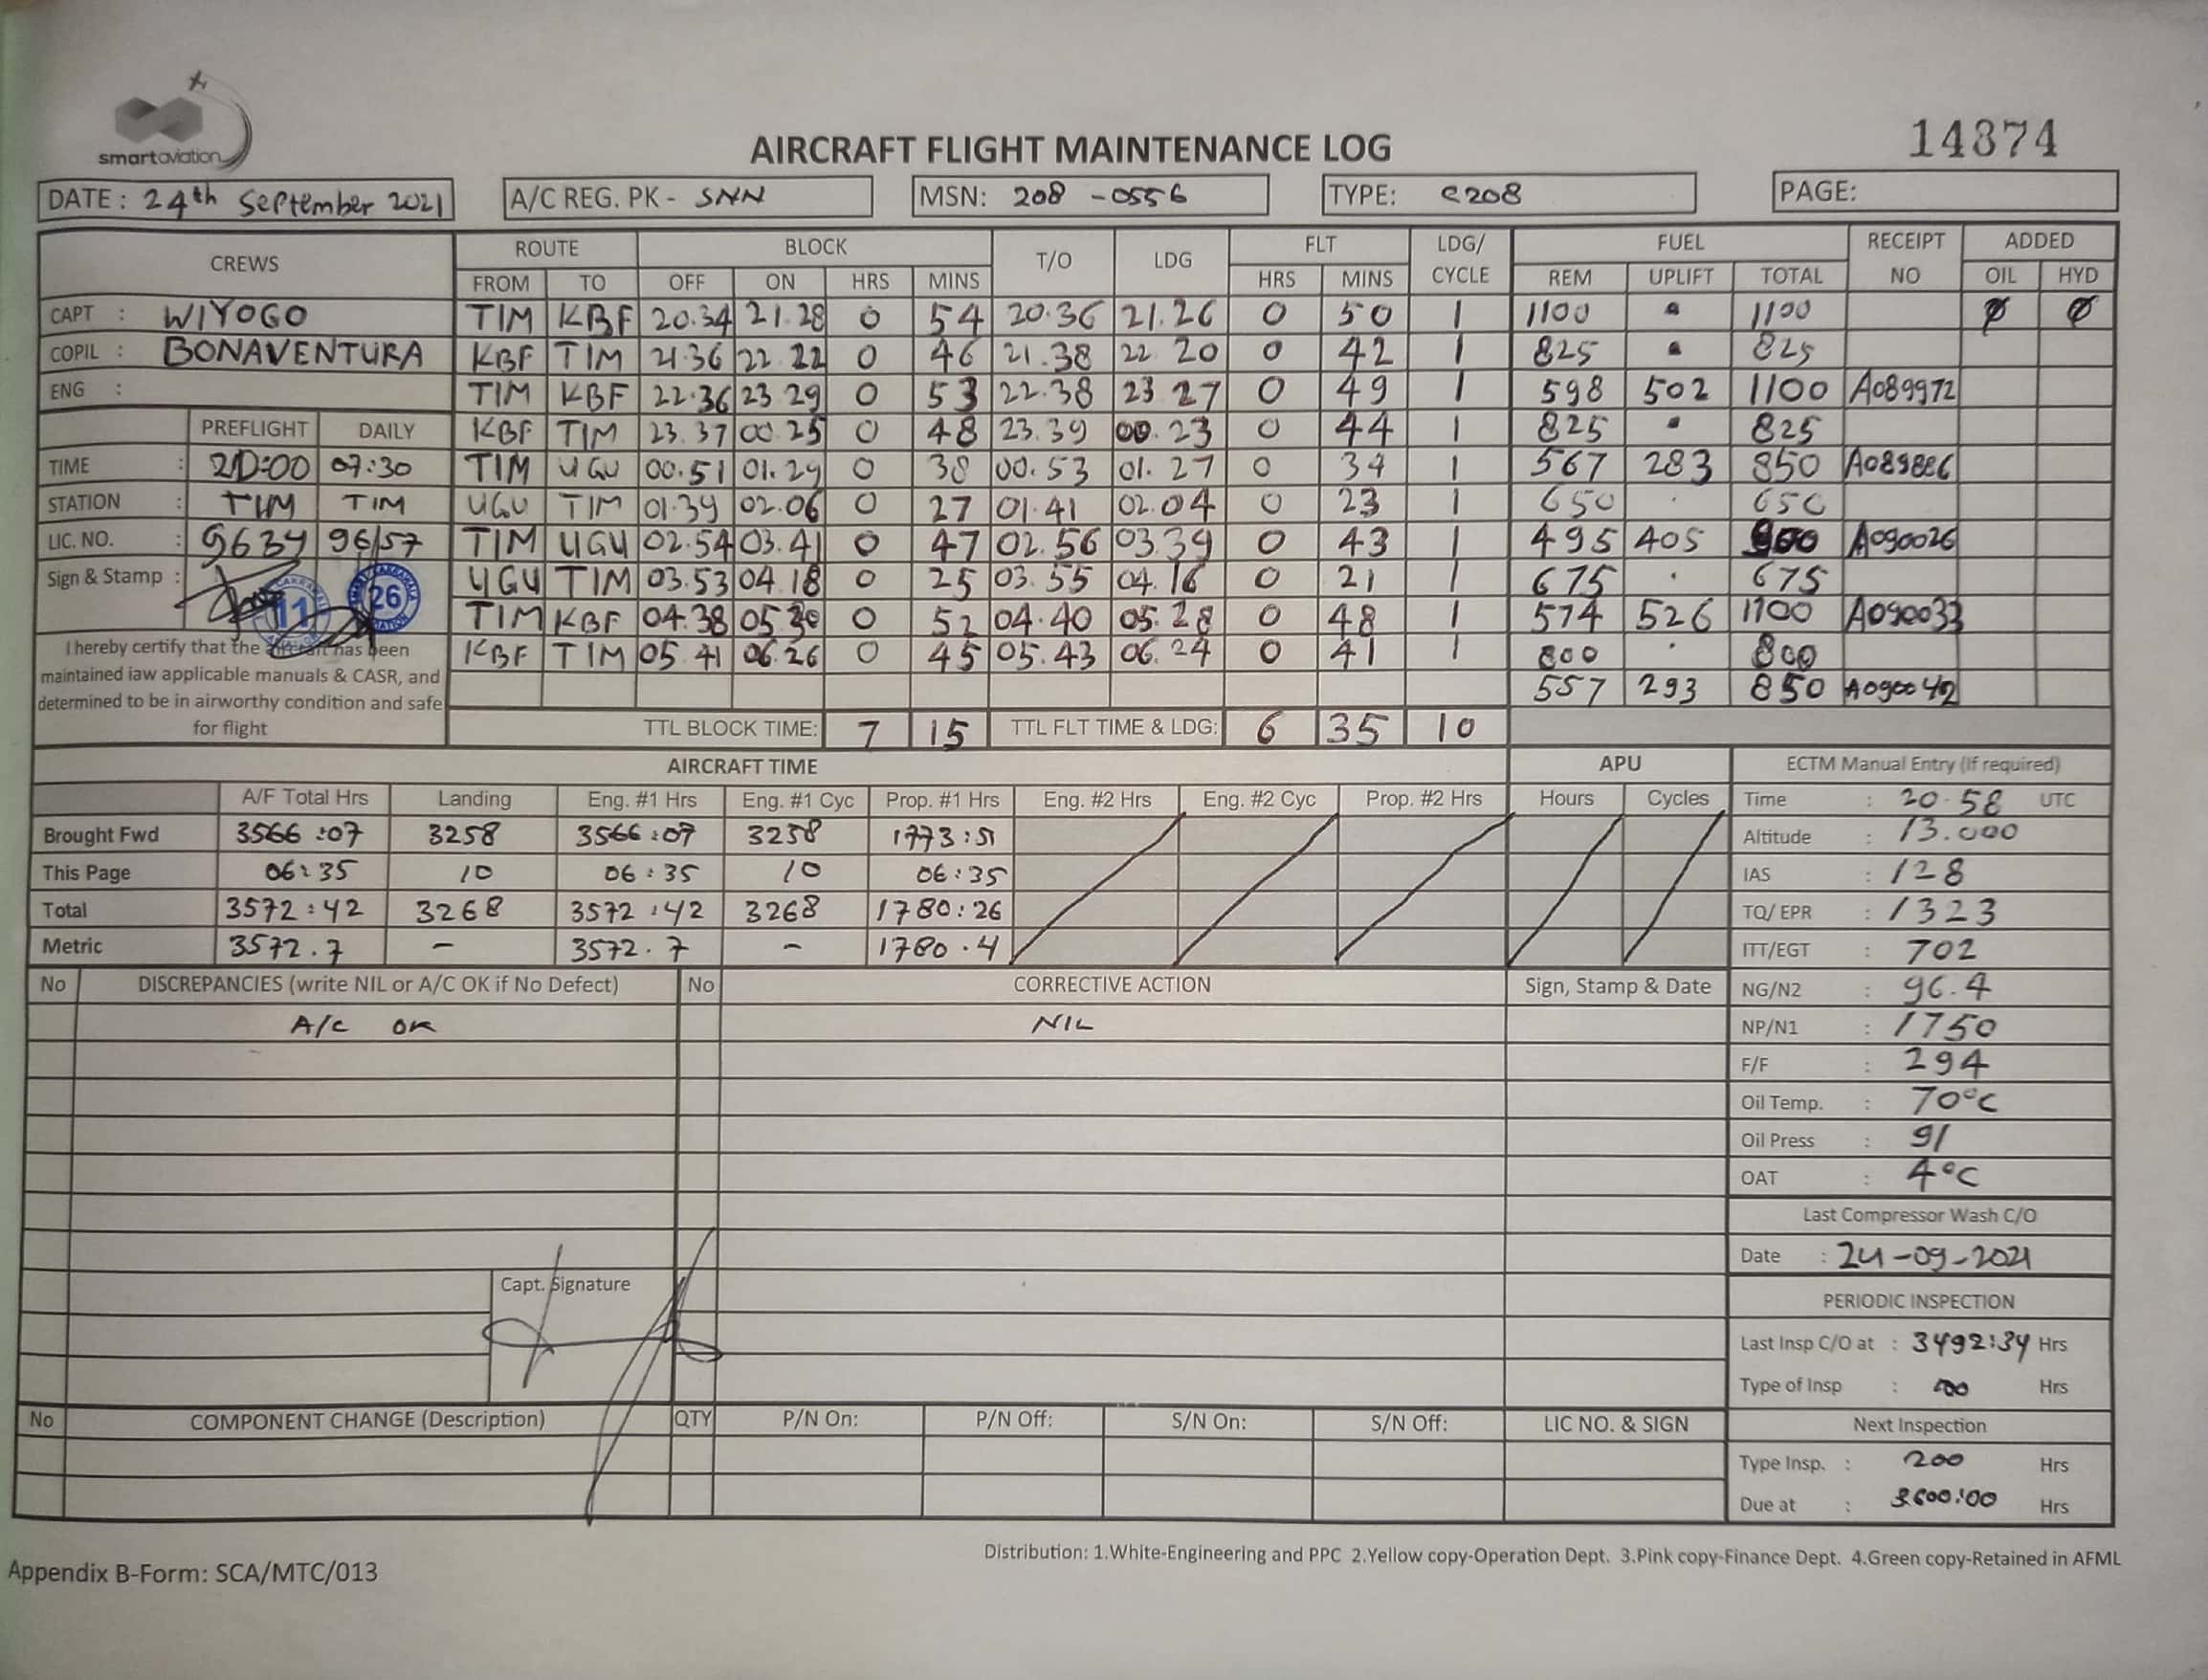 smartaviation
AIRCRAFT FLIGHT MAINTENANCE LOG
14374
DATE : 24th September 2021 A/C REG. PK - SNN MSN: 208 -0556 TYPE: C208 PAGE:
CREWS ROUTE BLOCK T/O LDG FLT LDG/ CYCLE FUEL RECEIPT NO ADDED
FROM TO OFF ON HRS MINS HRS MINS REM UPLIFT TOTAL OIL HYD
CAPT : WIYOGO TIM KBF 20.34 21.28 0 54 20.36 21.26 0 50 1 1100 - 1100 Ø Ø
COPIL : BONAVENTURA KBF TIM 21.36 22.22 0 46 21.38 22.20 0 42 1 825 - 825
ENG : TIM KBF 22.36 23.29 0 53 22.38 23.27 0 49 1 598 502 1100 A089972
PREFLIGHT DAILY KBF TIM 23.37 00.25 0 48 23.39 00.23 0 44 1 825 - 825
TIME : 20:00 07:30 TIM UGU 00.51 01.29 0 38 00.53 01.27 0 34 1 567 283 850 A089886
STATION : TIM TIM UGU TIM 01.39 02.06 0 27 01.41 02.04 0 23 1 650 . 650
LIC. NO. : 9634 9657 TIM UGU 02.54 03.41 0 47 02.56 03.39 0 43 1 495 405 900 A090026
Sign & Stamp : 11 26 UGU TIM 03.53 04.18 0 25 03.55 04.16 0 21 1 675 . 675
TIM KBF 04.38 05.30 0 52 04.40 05.28 0 48 1 574 526 1100 A090033
KBF TIM 05.41 06.26 0 45 05.43 06.24 0 41 1 800 . 800
557 293 850 A090042
I hereby certify that the aircraft has been
maintained iaw applicable manuals & CASR, and
determined to be in airworthy condition and safe
for flight
TTL BLOCK TIME: 7 15 TTL FLT TIME & LDG: 6 35 10
AIRCRAFT TIME APU
A/F Total Hrs Landing Eng. #1 Hrs Eng. #1 Cyc Prop. #1 Hrs Eng. #2 Hrs Eng. #2 Cyc Prop. #2 Hrs Hours Cycles
Brought Fwd 3566:07 3258 3566:07 3258 1773:51
This Page 06:35 10 06:35 10 06:35
Total 3572:42 3268 3572:42 3268 1780:26
Metric 3572.7 - 3572.7 - 1780.4
ECTM Manual Entry (If required)
Time : 20.58 UTC
Altitude : 13.000
IAS : 128
TQ/ EPR : 1323
ITT/EGT : 702
NG/N2 : 96.4
NP/N1 : 1750
F/F : 294
Oil Temp. : 70°C
Oil Press : 91
OAT : 4°C
Last Compressor Wash C/O
Date : 24-09-2021
PERIODIC INSPECTION
Last Insp C/O at : 3492:34 Hrs
Type of Insp : Hrs
Next Inspection
Type Insp. : 200 Hrs
Due at : 3600:00 Hrs
No DISCREPANCIES (write NIL or A/C OK if No Defect) No CORRECTIVE ACTION Sign, Stamp & Date
A/C OK NIL
Capt. Signature
No COMPONENT CHANGE (Description) QTY P/N On: P/N Off: S/N On: S/N Off: LIC NO. & SIGN
Distribution: 1.White-Engineering and PPC 2.Yellow copy-Operation Dept. 3.Pink copy-Finance Dept. 4.Green copy-Retained in AFML
Appendix B-Form: SCA/MTC/013